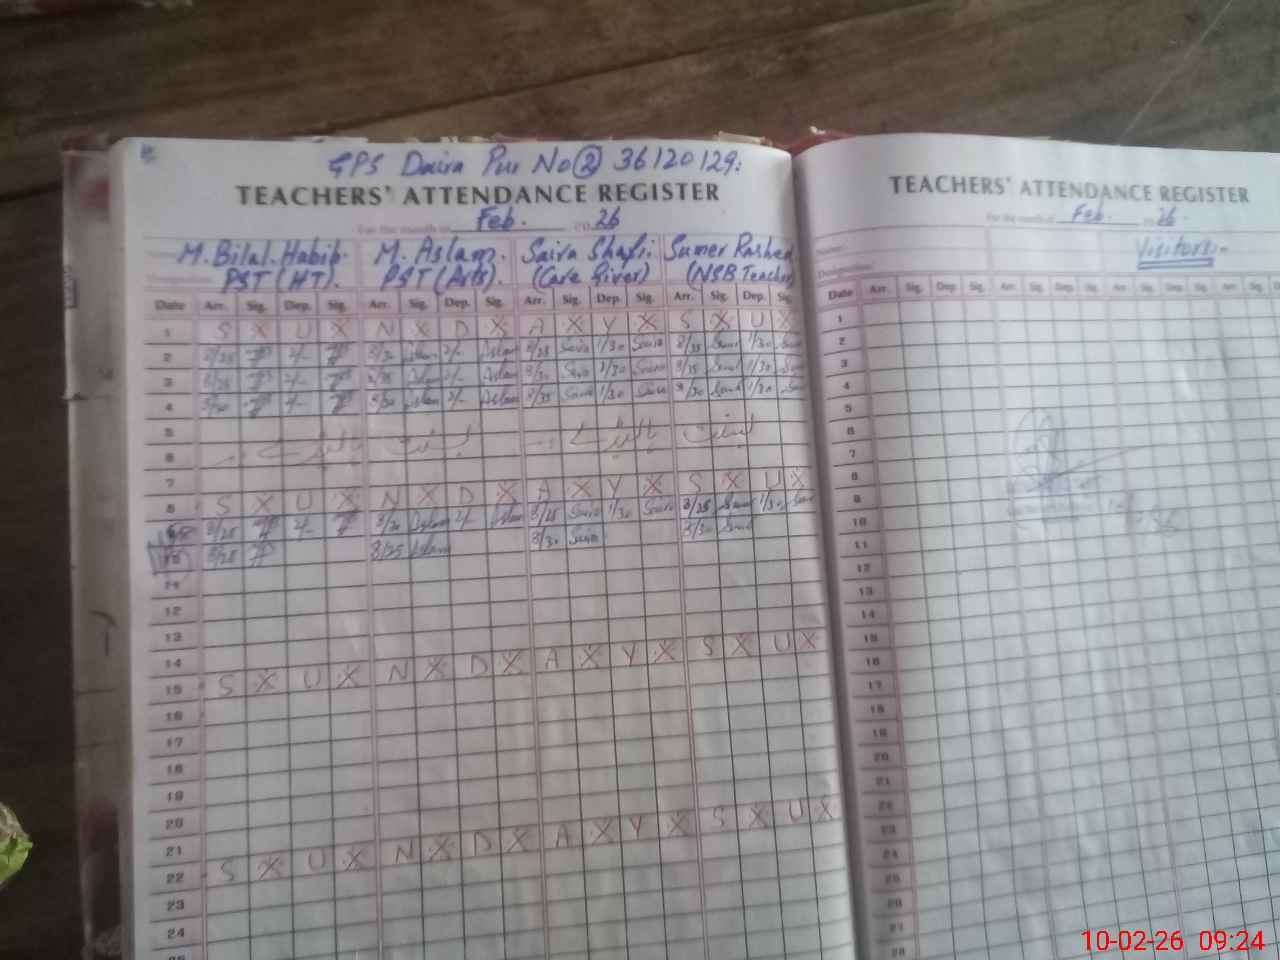 GPS Daira Pur No 2 36120129:
TEACHERS' ATTENDANCE REGISTER
For the month of Feb. 26
M. Bilal Habib. M. Aslam. Saira Shafi. Sumer Rashed
PST (HT). PST (Arts). (Care Giver) (NSB Teacher)
Date Arr. Sig. Dep. Sig. Arr. Sig. Dep. Sig. Arr. Sig. Dep. Sig. Arr. Sig. Dep. Sig.
1 S X U X N X D X A X Y X S X U X
2 8/25 2/- 8/30 Aslam 2/- Aslam 8/25 Saira 1/30 Saira 8/35 1/30
3 8/25 2/- 8/25 Aslam 2/- Aslam 8/30 Saira 1/30 Saira 8/35 1/30
4 8/30 2/- 8/30 Aslam 2/- Aslam 8/35 Saira 1/30 Saira 8/30 1/30
5
6
7
8 S X U X N X D X A X Y X S X U X
8/25 2/- 8/30 Aslam 2/- Aslam 8/25 Saira 1/30 Saira 8/25 1/30
10 8/25 8/25 Aslam 8/30 Saira 8/30
11
12
13
14
15 S X U X N X D X A X Y X S X U X
16
17
18
19
20
21
22 S X U X N X D X A X Y X S X U X
23
24
25
TEACHERS' ATTENDANCE REGISTER
For the month of Feb. 26.
Name:
Visitors:-
Designation:
Date Arr. Sig. Dep. Sig. Arr. Sig. Dep. Sig. Arr. Sig. Dep. Sig.
1
2
3
4
5
6
7
8
9
10
11
12
13
14
15
16
17
18
19
20
21
22
23
24
25
26
27
28
10-02-26 09:24